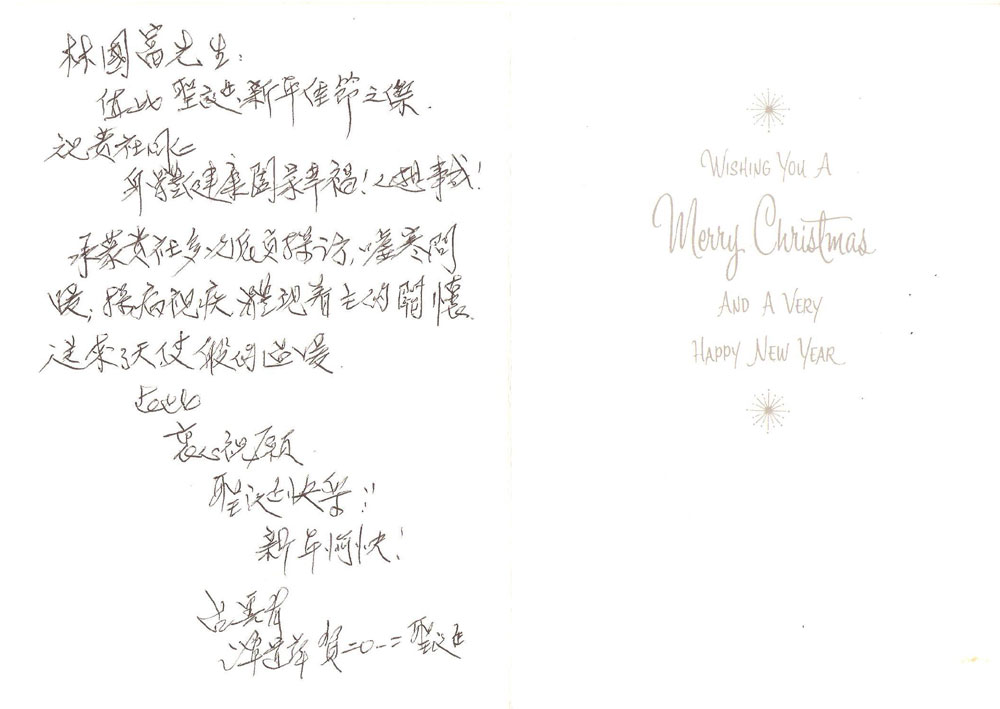 林國富先生：
值此 聖誕、新年佳節之際.
祝貴社同仁
身體健康闔家幸福！心想事成！
承蒙貴社多次派員探访，噓寒問
暖，探病視疾 體现着主的關懷
送來了天使般的温暖.
在此
衷心祝愿
聖诞快樂！！
新年愉快！
賀二〇一二聖诞
WISHING YOU A
Merry Christmas
AND A VERY
HAPPY NEW YEAR